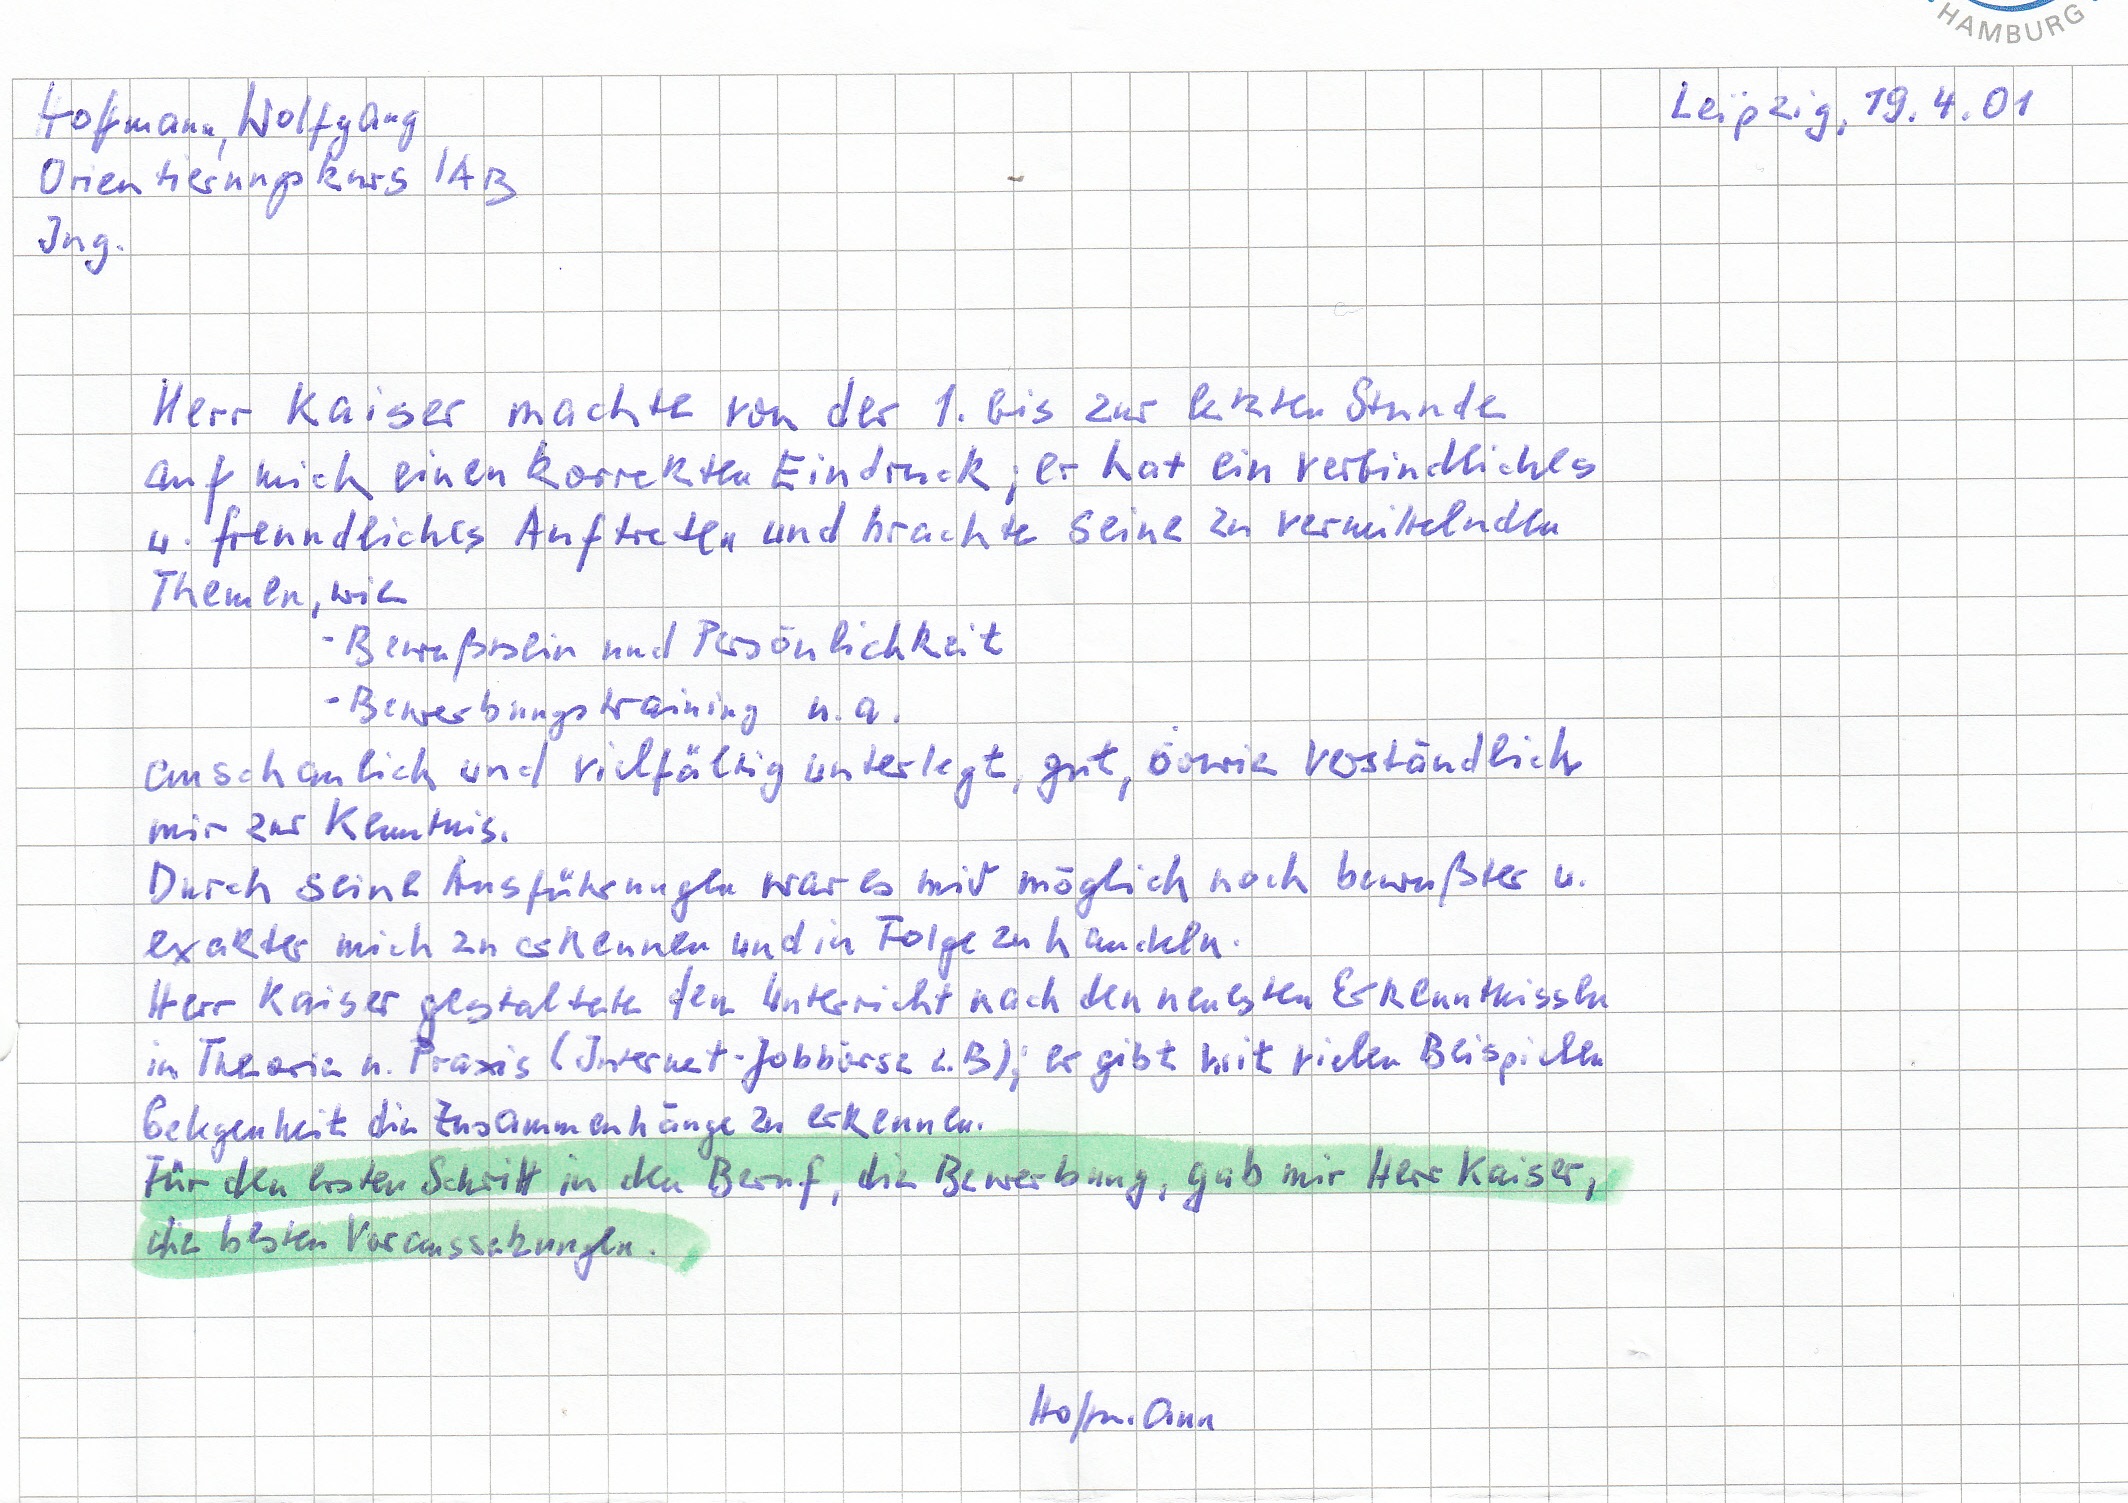 HAMBURG
Hoffmann, Wolfgang
Leipzig, 19.4.01
Orientierungskurs IAB
Ing.
Herr Kaiser machte von der 1. bis zur letzten Stunde
auf mich einen korrekten Eindruck; er hat ein verbindliches
u. freundliches Auftreten und brachte seine zu vermittelnden
Themen, wie
- Bewußtsein und Persönlichkeit
- Bewerbungstraining u.a.
anschaulich und vielfältig unterlegt, gut, sowie verständlich
mir zur Kenntnis.
Durch seine Ausführungen war es mir möglich noch bewußter u.
exakter mich zu erkennen und in Folge zu handeln.
Herr Kaiser gestaltete den Unterricht nach den neuesten Erkenntnissen
in Theorie u. Praxis (Internet-Jobbörse z.B); er gibt mit vielen Beispielen
Gelegenheit die Zusammenhänge zu erkennen.
Für den ersten Schritt in den Beruf, die Bewerbung, gab mir Herr Kaiser,
die besten Voraussetzungen.
Hoffmann